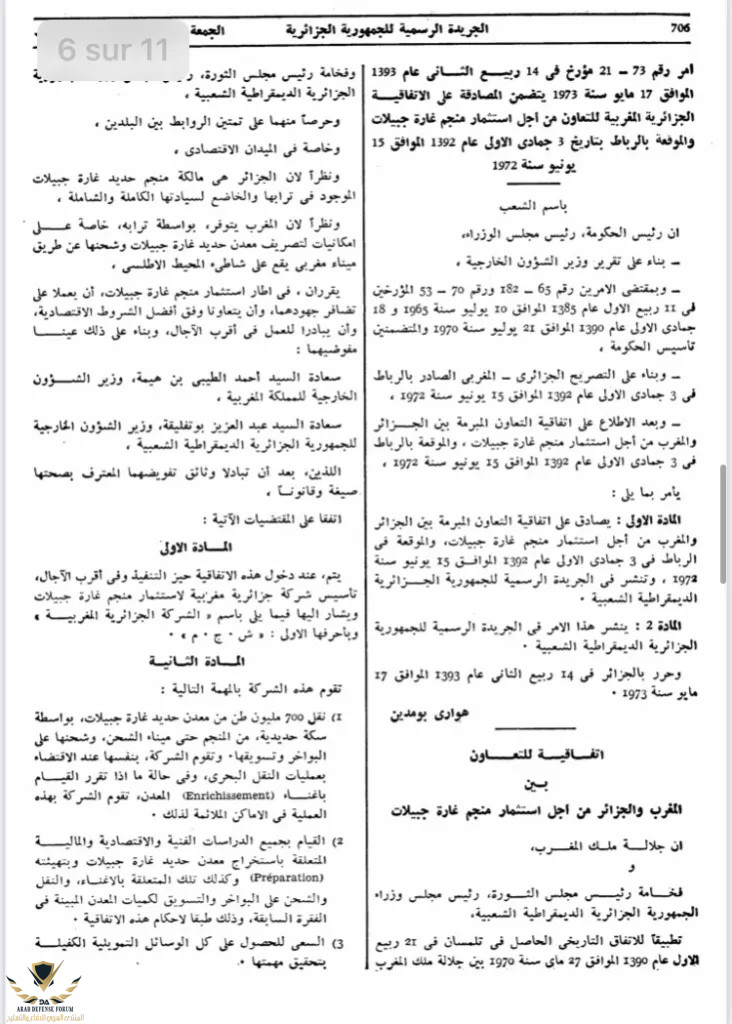 706
الجريدة الرسمية للجمهورية الجزائرية
الجمعة
6 sur 11
امر رقم 73 – 21 مؤرخ فى 14 ربيع الثانى عام 1393
الموافق 17 مايو سنة 1973 يتضمن المصادقة على الاتفاقية
الجزائرية المغربية للتعاون من أجل استثمار منجم غارة جبيلات
والموقعة بالرباط بتاريخ 3 جمادى الاولى عام 1392 الموافق 15
يونيو سنة 1972
باسم الشعب
ان رئيس الحكومة، رئيس مجلس الوزراء،
– بناء على تقرير وزير الشؤون الخارجية ،
– وبمقتضى الامرين رقم 65 – 182 ورقم 70 – 53 المؤرخين
فى 11 ربيع الاول عام 1385 الموافق 10 يوليو سنة 1965 و 18
جمادى الاولى عام 1390 الموافق 21 يوليو سنة 1970 والمتضمنين
تأسيس الحكومة ،
– وبناء على التصريح الجزائرى – المغربى الصادر بالرباط
فى 3 جمادى الاولى عام 1392 الموافق 15 يونيو سنة 1972 ،
– وبعد الاطلاع على اتفاقية التعاون المبرمة بين الجزائر
والمغرب من أجل استثمار منجم غارة جبيلات ، والموقعة بالرباط
فى 3 جمادى الاولى عام 1392 الموافق 15 يونيو سنة 1972 ،
يأمر بما يلى :
المادة الاولى : يصادق على اتفاقية التعاون المبرمة بين الجزائر
والمغرب من أجل استثمار منجم غارة جبيلات، والموقعة فى
الرباط فى 3 جمادى الاولى عام 1392 الموافق 15 يونيو سنة
1972 ، وتنشر فى الجريدة الرسمية للجمهورية الجزائرية
الديمقراطية الشعبية ·
المادة 2 : ينشر هذا الامر فى الجريدة الرسمية للجمهورية
الجزائرية الديمقراطية الشعبية ·
وحرر بالجزائر فى 14 ربيع الثانى عام 1393 الموافق 17
مايو سنة 1973 ·
هوارى بومدين
اتفاقية للتعاون
بين
المغرب والجزائر من أجل استثمار منجم غارة جبيلات
ان جلالة ملك المغرب،
و
فخامة رئيس مجلس الثورة، رئيس مجلس وزراء
الجمهورية الجزائرية الديمقراطية الشعبية،
تطبيقاً للاتفاق التاريخى الحاصل فى تلمسان فى 21 ربيع
الاول عام 1390 الموافق 27 ماى سنة 1970 بين جلالة ملك المغرب
وفخامة رئيس مجلس الثورة،
الجزائرية الديمقراطية الشعبية ،
وحرصاً منهما على تمتين الروابط بين البلدين ،
وخاصة فى الميدان الاقتصادى ،
ونظراً لان الجزائر هى مالكة منجم حديد غارة جبيلات
الموجود فى ترابها والخاضع لسيادتها الكاملة والشاملة ،
ونظراً لان المغرب يتوفر، بواسطة ترابه، خاصة على
امكانيات لتصريف معدن حديد غارة جبيلات وشحنها عن طريق
ميناء مغربى يقع على شاطىء المحيط الاطلسى ،
يقرران ، فى اطار استثمار منجم غارة جبيلات، أن يعملا على
تضافر جهودهما، وأن يتعاونا وفق أفضل الشروط الاقتصادية،
وأن يبادرا للعمل فى أقرب الآجال، وبناء على ذلك عينا
مفوضيهما :
سعادة السيد أحمد الطيبى بن هيمة، وزير الشؤون
الخارجية للمملكة المغربية ،
سعادة السيد عبد العزيز بوتفليقة، وزير الشؤون الخارجية
للجمهورية الجزائرية الديمقراطية الشعبية ،
اللذين، بعد أن تبادلا وثائق تفويضهما المعترف بصحتها
صيغة وقانوناً ،
اتفقا على المقتضيات الآتية :
المادة الاولى
يتم، عند دخول هذه الاتفاقية حيز التنفيذ وفى أقرب الآجال،
تأسيس شركة جزائرية مغربية لاستثمار منجم غارة جبيلات
ويشار اليها فيما يلى باسم « الشركة الجزائرية المغربية »
وبأحرفها الاولى : « ش · ج · م » ·
المادة الثانية
تقوم هذه الشركة بالمهمة التالية :
1) نقل 700 مليون طن من معدن حديد غارة جبيلات، بواسطة
سكة حديدية، من المنجم حتى ميناء الشحن، وشحنها على
البواخر وتسويقها· وتقوم الشركة، بنفسها عند الاقتضاء
بعمليات النقل البحرى، وفى حالة ما اذا تقرر القيام
باغناء (Enrichissement) المعدن، تقوم الشركة بهذه
العملية فى الاماكن الملائمة لذلك ·
2) القيام بجميع الدراسات الفنية والاقتصادية والمالية
المتعلقة باستخراج معدن حديد غارة جبيلات وبتهيئته
(Préparation) وكذلك تلك المتعلقة بالاغناء، والنقل
والشحن على البواخر والتسويق لكميات المعدن المبينة فى
الفقرة السابقة، وذلك طبقا لاحكام هذه الاتفاقية ·
3) السعى للحصول على كل الوسائل التمويلية الكفيلة
بتحقيق مهمتها ·
DA
ARAB DEFENSE FORUM
المنتدى العربي للدفاع والتسليح